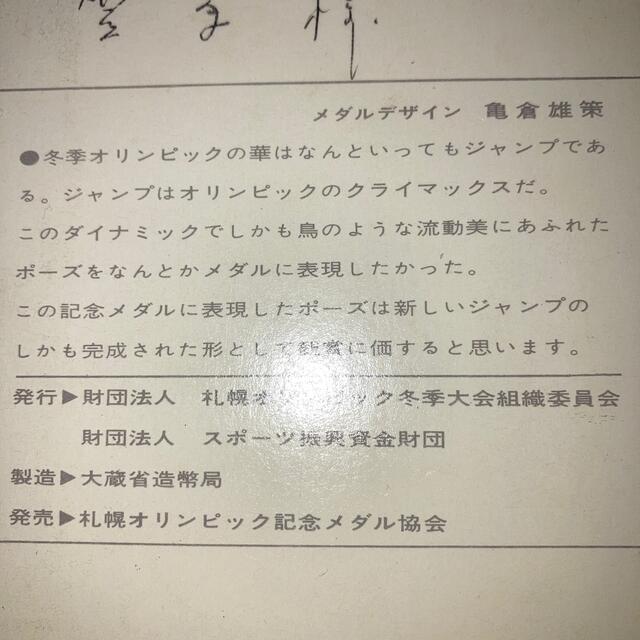 様
メダルデザイン 亀倉雄策
●冬季オリンピックの華はなんといってもジャンプであ
る。ジャンプはオリンピックのクライマックスだ。
このダイナミックでしかも鳥のような流動美にあふれた
ポーズをなんとかメダルに表現したかった。
この記念メダルに表現したポーズは新しいジャンプの
しかも完成された形として観賞に価すると思います。
発行▶財団法人 札幌オリンピック冬季大会組織委員会
財団法人 スポーツ振興資金財団
製造▶大蔵省造幣局
発売▶札幌オリンピック記念メダル協会